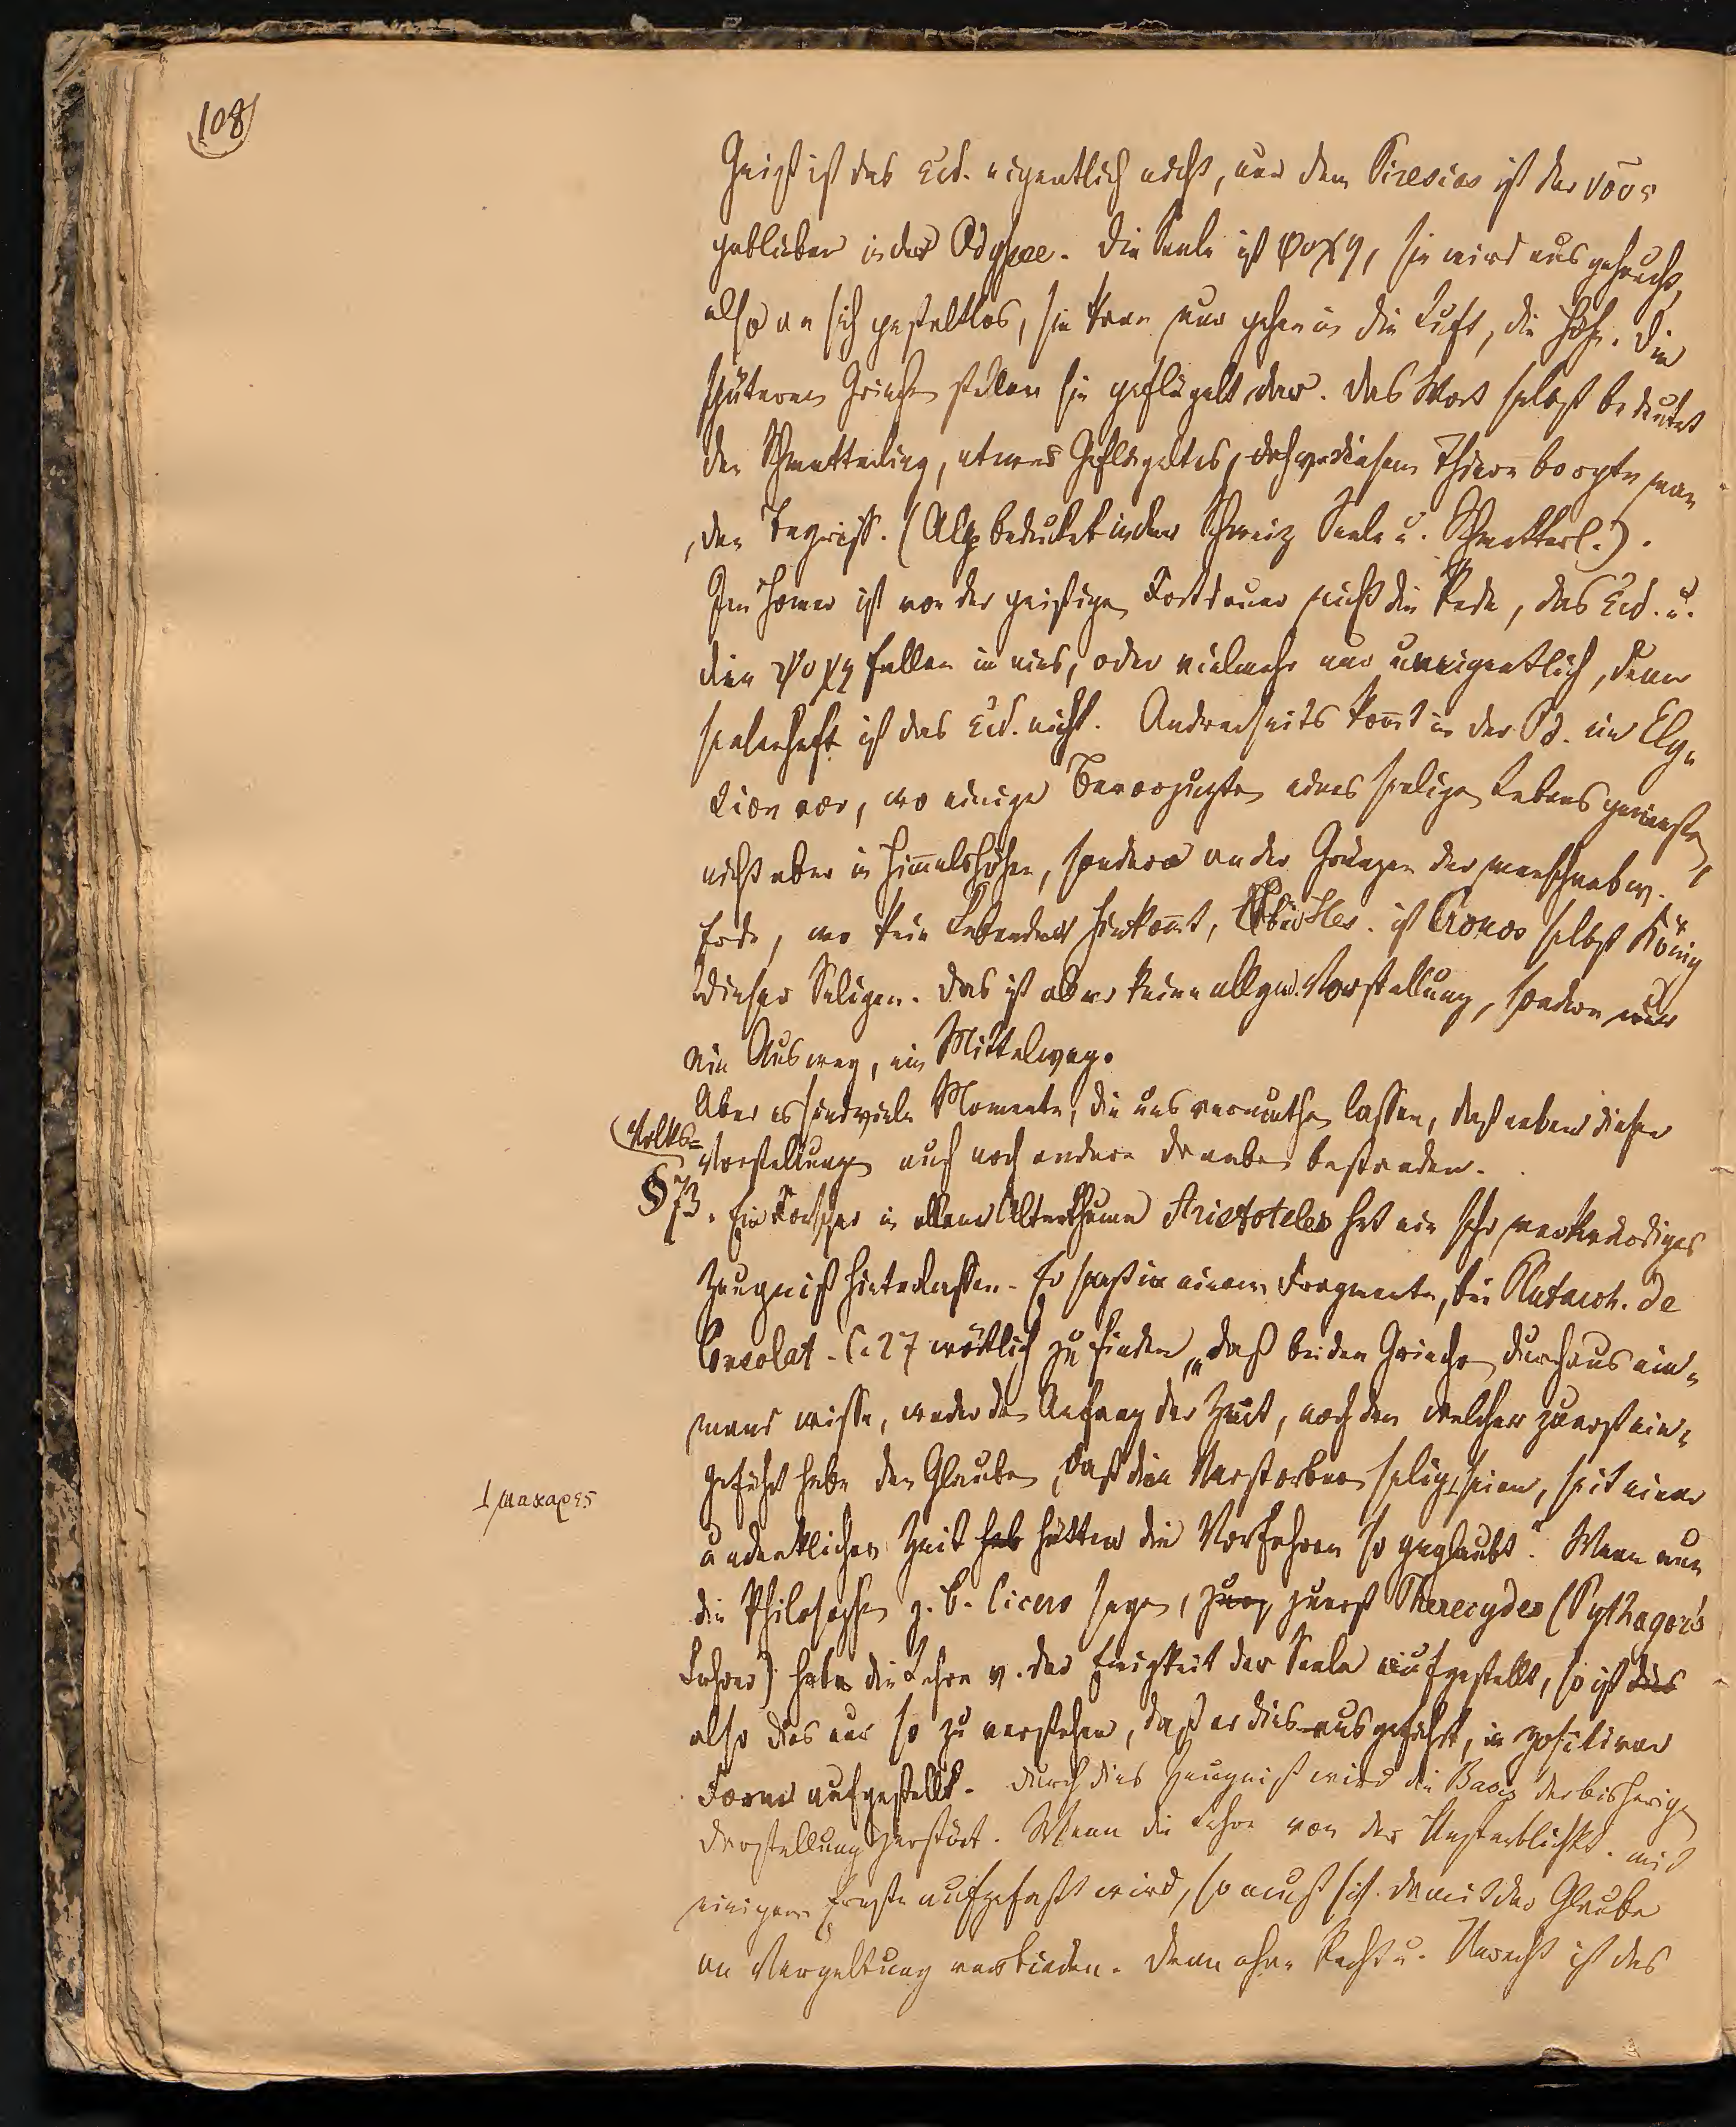 108
Geist ist das Eid. eigentlich nicht, nur dem Tiresias ist der νους
geblieben in der Odyssee. Die Seele ist ψυχη, sie wird ausgehaucht,
also an sich gestaltlos, sie kann nur gehen in die Luft, die Höhe. Die
späteren Griechen stellen sie geflügelt dar. Das Wort selbst bedeutet
den Schmetterling, etwas Geflügeltes, diesem Thiere borgte man
den Begriff. (Alp bedeutet in der Schweiz Seele u. Schmetterl.).
Im Homer ist von der geistigen Fortdauer nicht die Rede, das Eid. u.
die ψυχη fallen in eins, oder vielmehr nur uneigentlich, denn
seelenhaft ist das Eid. nicht. Andrerseits kom̄t in der Od. ein Ely-
sion vor, wo einige Bevorzugte eines seeligen Lebens genießen,
nicht aber in Him̄elshöhen, sondern an der Gränzen der menschenbew.
Erde, wo kein Lebender hinkom̄t, bei Hes. ist Cronos selbst König
dieser Seligen. Das ist aber keine allgem. Vorstellung, sondern nur
ein Ausweg, ein Mittelweg.
Aber es sind viele Momente, die uns vermuthen lassen, daß neben diesen
Volks-
Vorstellungen auch noch andere daneben bestanden.
§ 73. Ein Forscher in allem Alterthume Aristoteles hat ein sehr merkwürdiges
Zeugniß hinterlassen. Es steht in einem Fragmente, bei Plutarch. de
Consolat. C. 27 wörtlich zu finden „daß bei den Griechen durchaus nie-
mand wisse, weder den Anfang der Zeit, noch den welcher zuerst ein-
geführt habe den Glauben, daß die Verstorbenen selig seien, seit einer
⊥ μακαρες
undenklichen Zeit hab hätten die Vorfahren so geglaubt". Wenn nun
die Philosophen z. B. Cicero sagen, zuerst Pherecydes (Pythagora's
Lehrer) habe die Lehre v. der Ewigkeit der Seele aufgestellt, so ist dies
also dies nur so zu verstehen, daß er dies ausgeführt, in positiver
Form aufgestellt. Durch dies Zeugniß wird die Basis der bisherigen
Darstellung zerstört. Wenn die Lehre von der Unsterblichk. mit
einigem Ernste aufgefaßt wird, so muß sich damit der Glaube
an Vergeltung verbinden. Denn ohne Recht u. Unrecht ist das